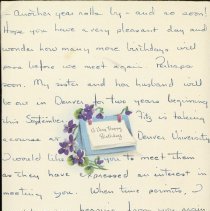 - another year rolls by - and so soon!
Hope you have a very pleasant day and
wonder how many more birthdays will
pass before we meet again. Perhaps
soon. My sister and her husband will
be in Denver for two years beginning
this September. He is taking
a course Denver University
I would like you to meet them
as they have expressed an interest in
meeting you. When time permits, I
hearing from you again
A Very Happy
Birthday